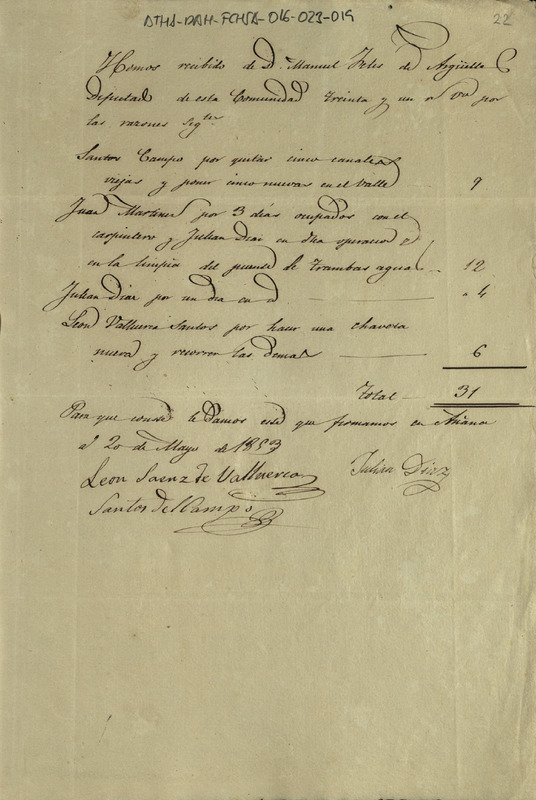 ATHA-DAH-FCHSA-016-023-019
22
Hemos recibido de D. Manuel de Argüelles
Diputado de esta Comunidad treinta y un r von por
las razones sigtes
Santos Campo por quitar cinco canales
viejas y poner cinco nuevas en el Valle 9
Juan Martinez por 3 dias ocupados con el
carpintero y Julian Diaz en dha operacion
en la limpia del puente de trambas aguas 12
Julian Diaz por un dia en id 4
Leon Valluerca Santos por hacer una chaveta
nueva y recorrer las demas 6
Total 31
Para que conste le damos este que firmamos en Añana
a 20 de Mayo de 1853
Leon Saenz de Valluerca Julian Diez
Santos del Campo